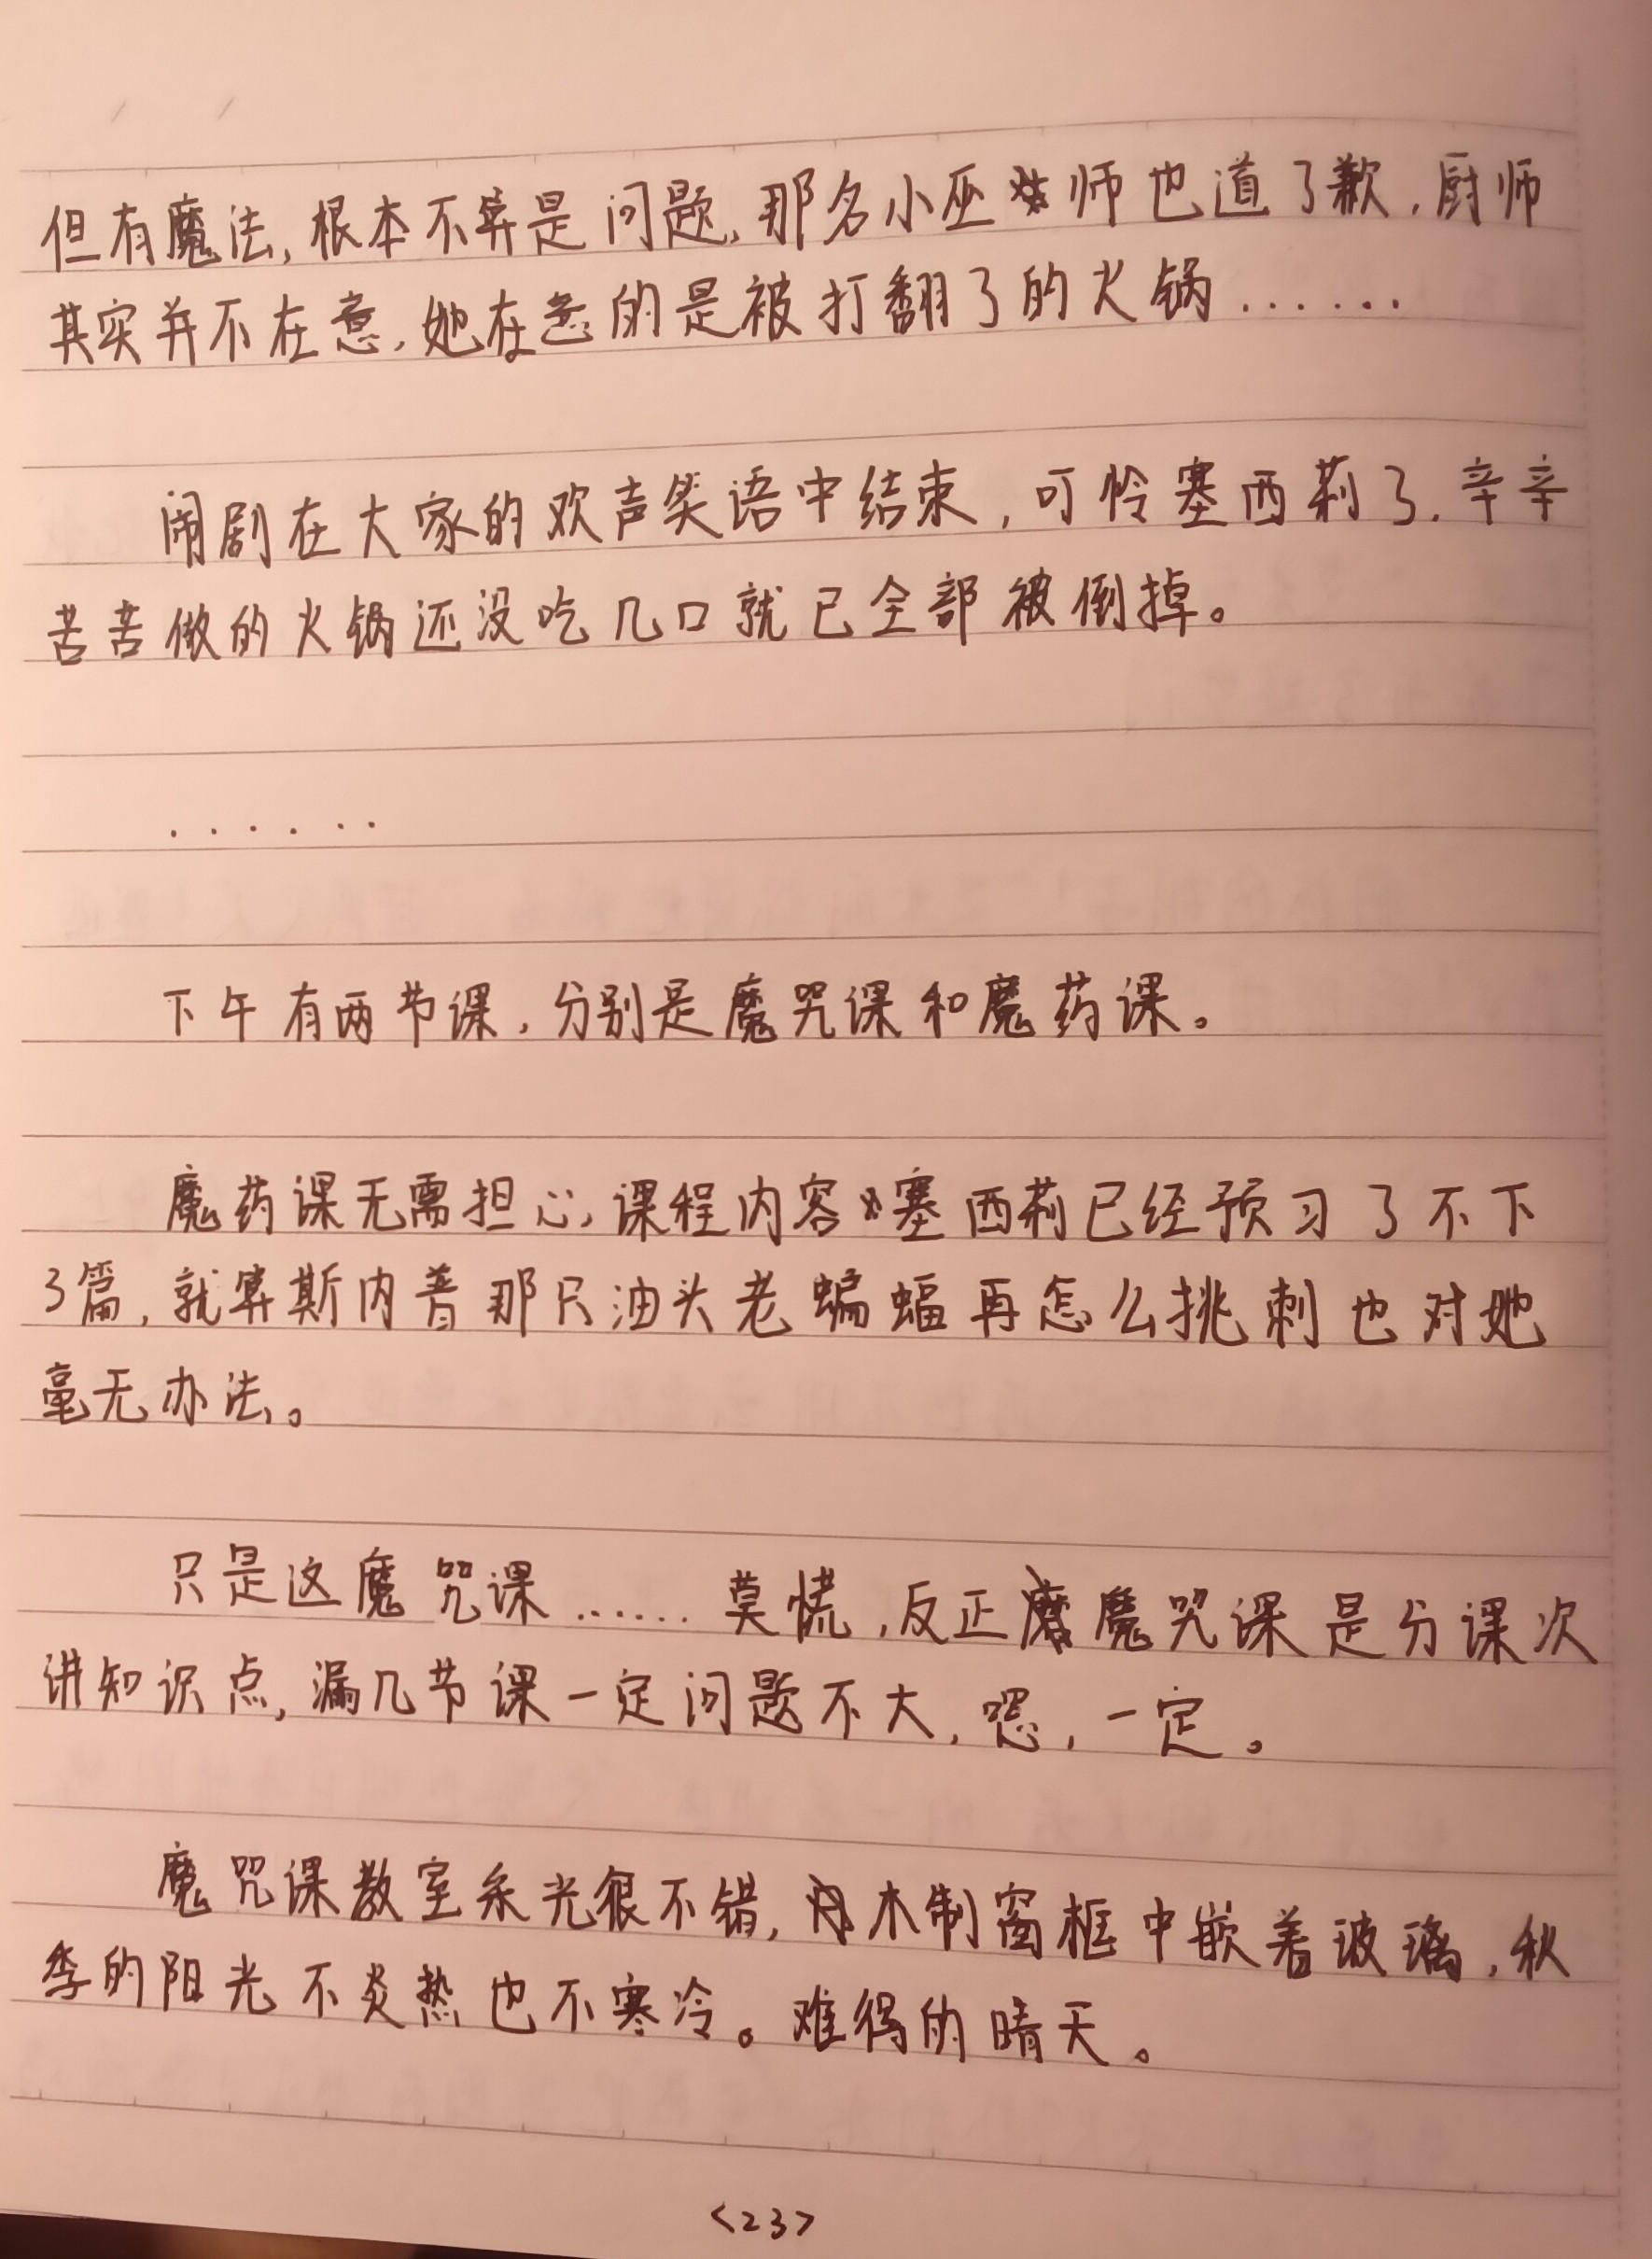 但有魔法，根本不算是问题，那名小巫师也道了歉，厨师
其实并不在意，她在意的是被打翻了的火锅......
闹剧在大家的欢声笑语中结束，可怜塞西莉了，辛辛
苦苦做的火锅还没吃几口就已全部被倒掉。
......
下午有两节课，分别是魔咒课和魔药课。
魔药课无需担心，课程内容塞西莉已经预习了不下
3篇，就算斯内普那只油头老蝙蝠再怎么挑刺也对她
毫无办法。
只是这魔咒课......莫慌，反正魔咒课是分课次
讲知识点，漏几节课一定问题不大，嗯，一定。
魔咒课教室采光很不错，木制窗框中嵌着玻璃，秋
季的阳光不炎热也不寒冷。难得的晴天。
<23>